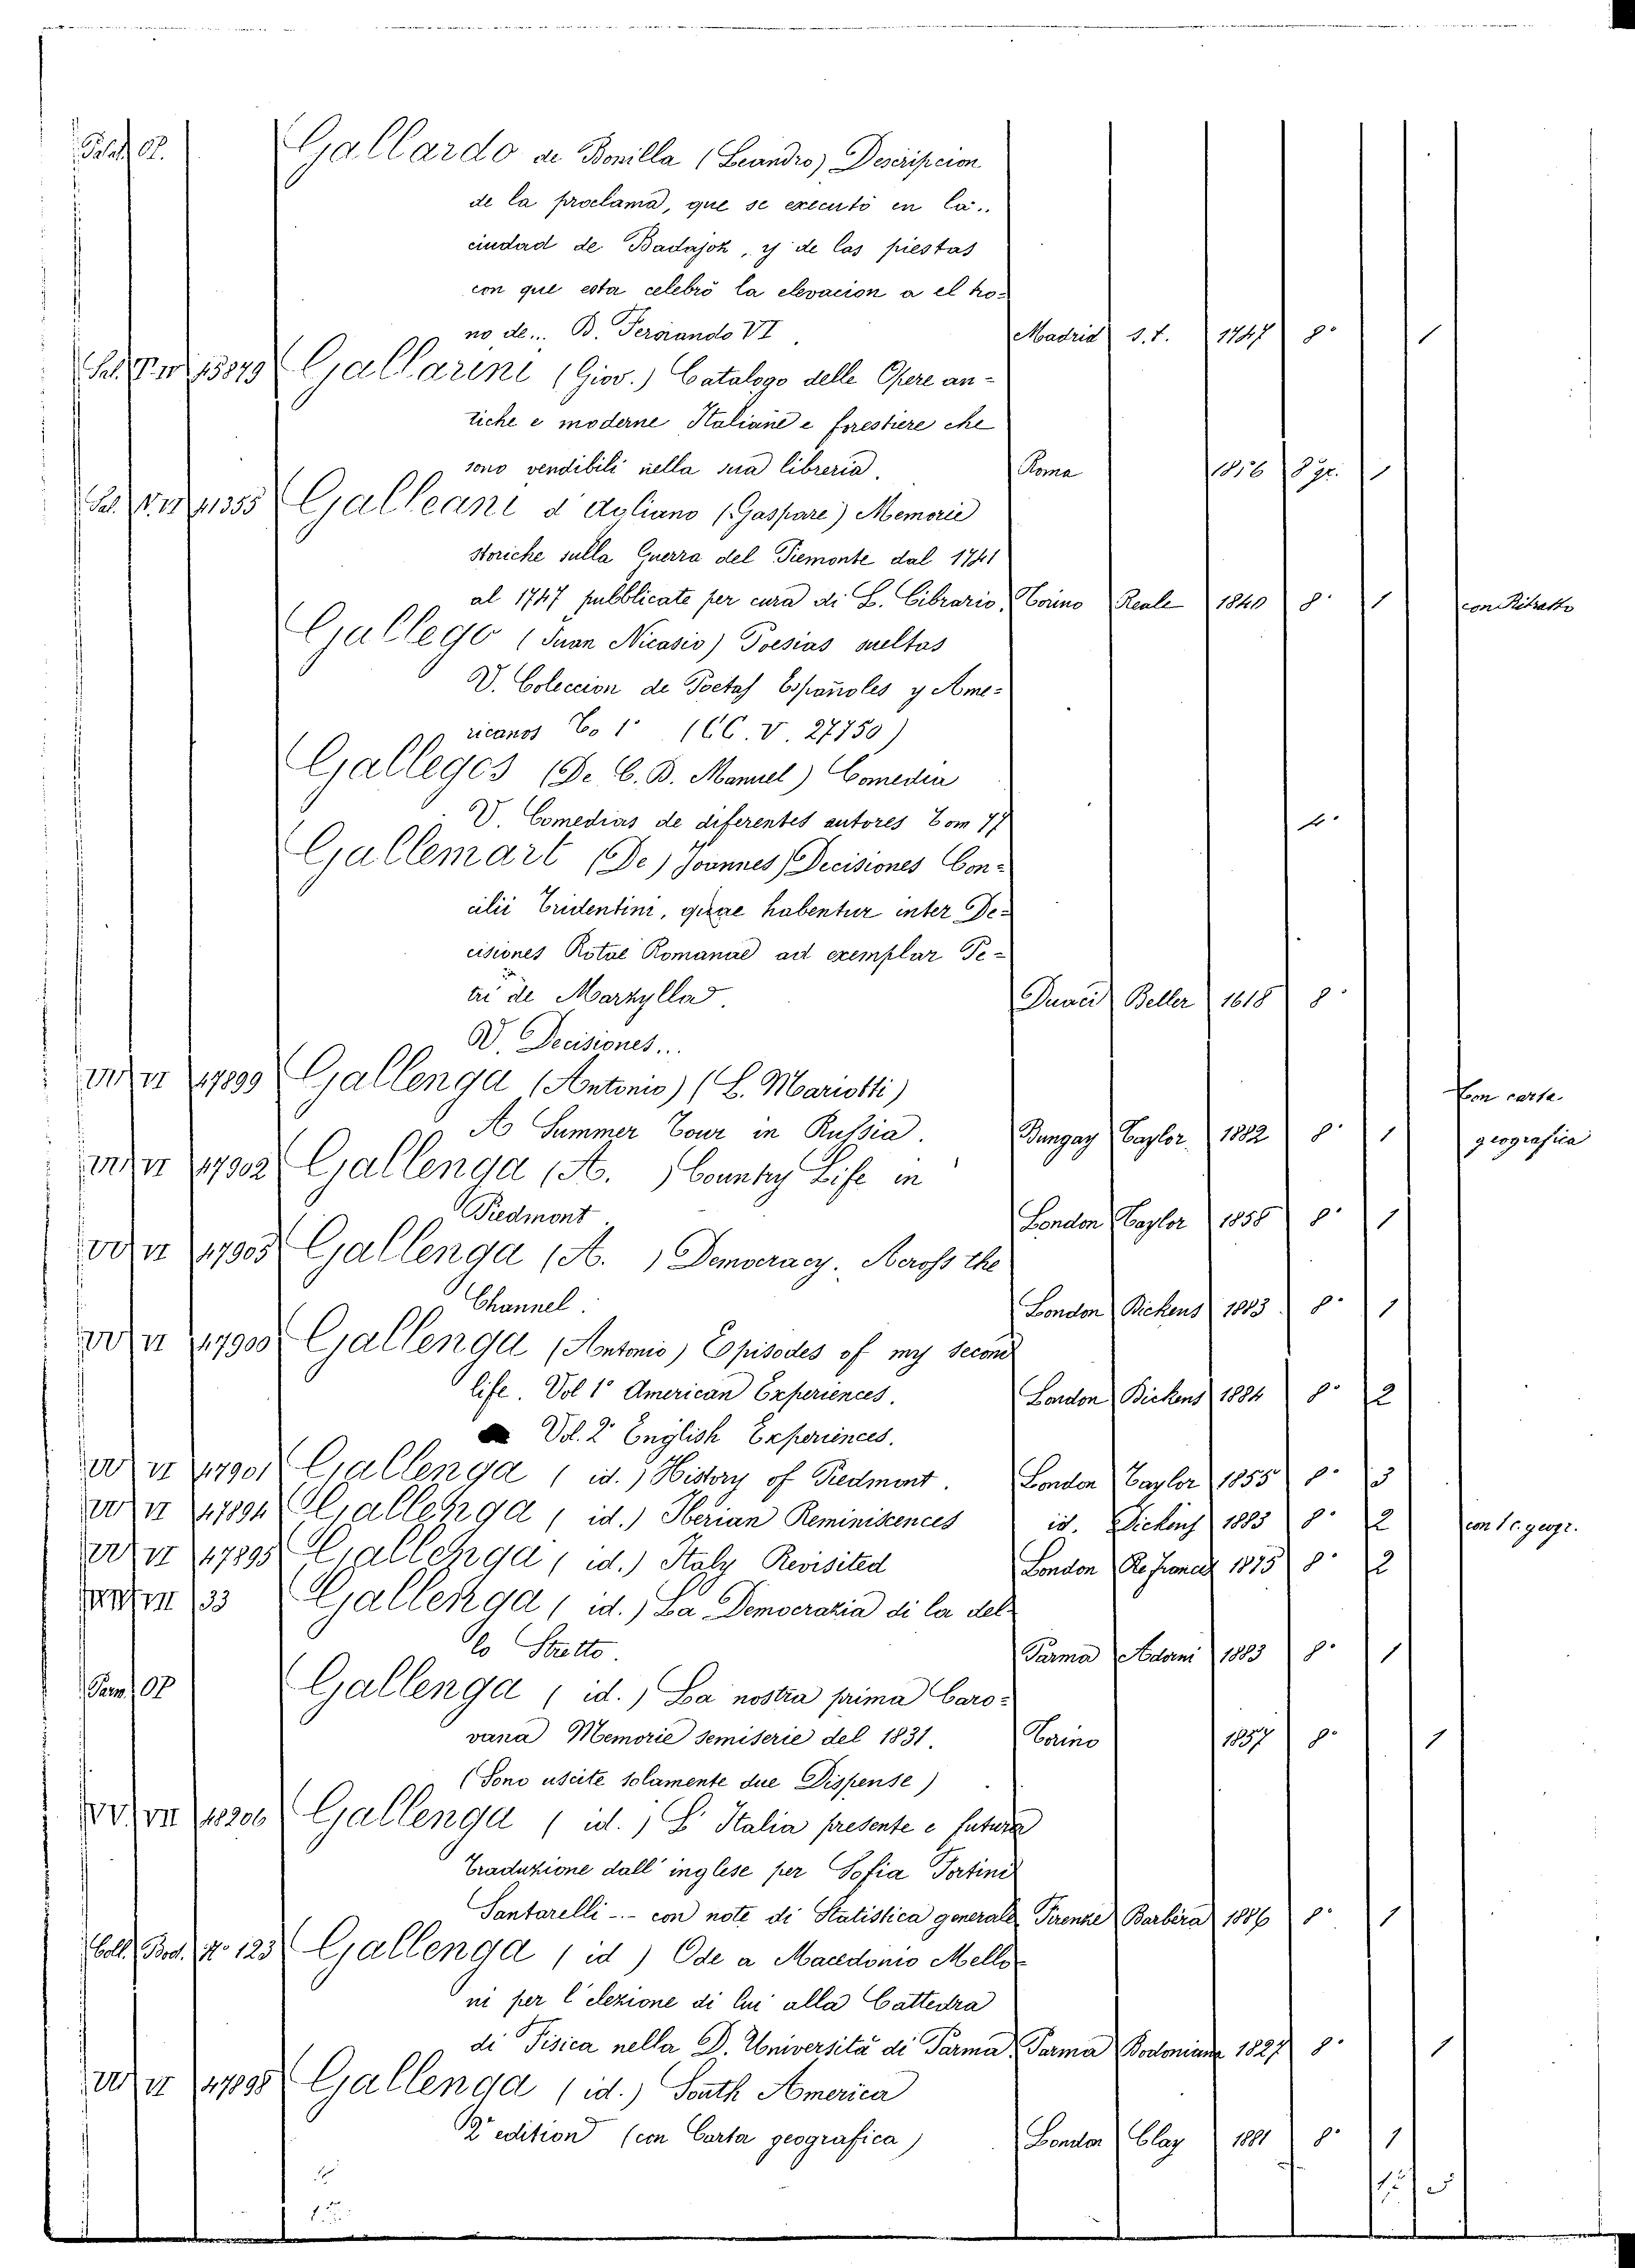 Palat. 02. Gallardo de Bonilla (Leandro) Descripcion
de la proclama, que se executó en la..
ciudad de Badajoz, y de las fiestas
con que esta celebró la elevacion a el tro=
no de... B. Fernando VI Madrid s.t. 1747 8° 1
Sal. 15879 Gallarini (Giov.) Catalogo delle Opere an=
tiche e moderne Italiane e forestiere che
sono vendibili nella sua libreria. Roma 1856 8 gr. 1
Sal. 41355 Galleani d'Agliano (Gaspare) Memorie
storiche sulla Guerra del Piemonte dal 1741
al 1747 pubblicate per cura di L. Cibrario. Torino Reale 1840 8° 1 con Ritratto
Gallego (Juan Nicasio) Poesias sueltas
V. Coleccion de Poetas Españoles y Ame=
ricanos To 1° (CC. V. 27750)
Gallegos (De C. B. Manuel) Comedia
V. Comedias de diferentes autores Tom 77 4°
Gallemart (De) Joannes) Decisiones Con=
cilii Tridentini, quae habentur inter De=
cisiones Rotae Romanae ad exemplar Pe=
tri de Marzyllad. Duaci Beller 1618 8°
V. Decisiones...
VI 47899 Gallenga (Antonio) (L. Mariotti)
A Summer Tour in Russia. Bungay Taylor 1882 8° 1 Con carta geografica
VI 47902 Gallenga (A. ) Country Life in
Piedmont London Taylor 1858 8° 1
VI 47905 Gallenga (A. ) Democracy. Across the
Channel. London Bickens 1883 8° 1
VI 47900 Gallenga (Antonio) Episodes of my second
life. Vol 1° American Experiences. London Bickens 1884 8° 2
Vol. 2° English Experiences.
VI 47901 Gallenga ( id. ) History of Piedmont. London Taylor 1855 8° 3
VI 47894 Gallenga ( id. ) Iberian Reminiscences id. Dickens 1883 8° 2 con 1 c. geogr.
VI 47895 Gallenga ( id. ) Italy Revisited London 1875 8° 2
33 Gallenga ( id. ) La Democrazia di la del=
lo Stretto. Parma Adorni 1883 8° 1
Parm. 02 Gallenga ( id. ) La nostra prima Caro=
vana Memorie semiserie del 1831. Torino 1857 8° 1
(Sono uscite solamente due Dispense)
VII 48206 Gallenga ( id. ) L' Italia presente e futura
Traduzione dall' inglese per Sofia Fortini
Santarelli -.- con note di Statistica generale Firenze Barbèra 1886 8° 1
Coll. Bod. N° 123 Gallenga ( id ) Ode a Macedonio Mello=
ni per l' elezione di lui alla Cattedra
di Fisica nella D. Università di Parma. Parma Bodoniana 1827 8° 1
VI 47898 Gallenga ( id. ) South America
2° edition (con Carta geografica) London Clay 1881 8° 1
15